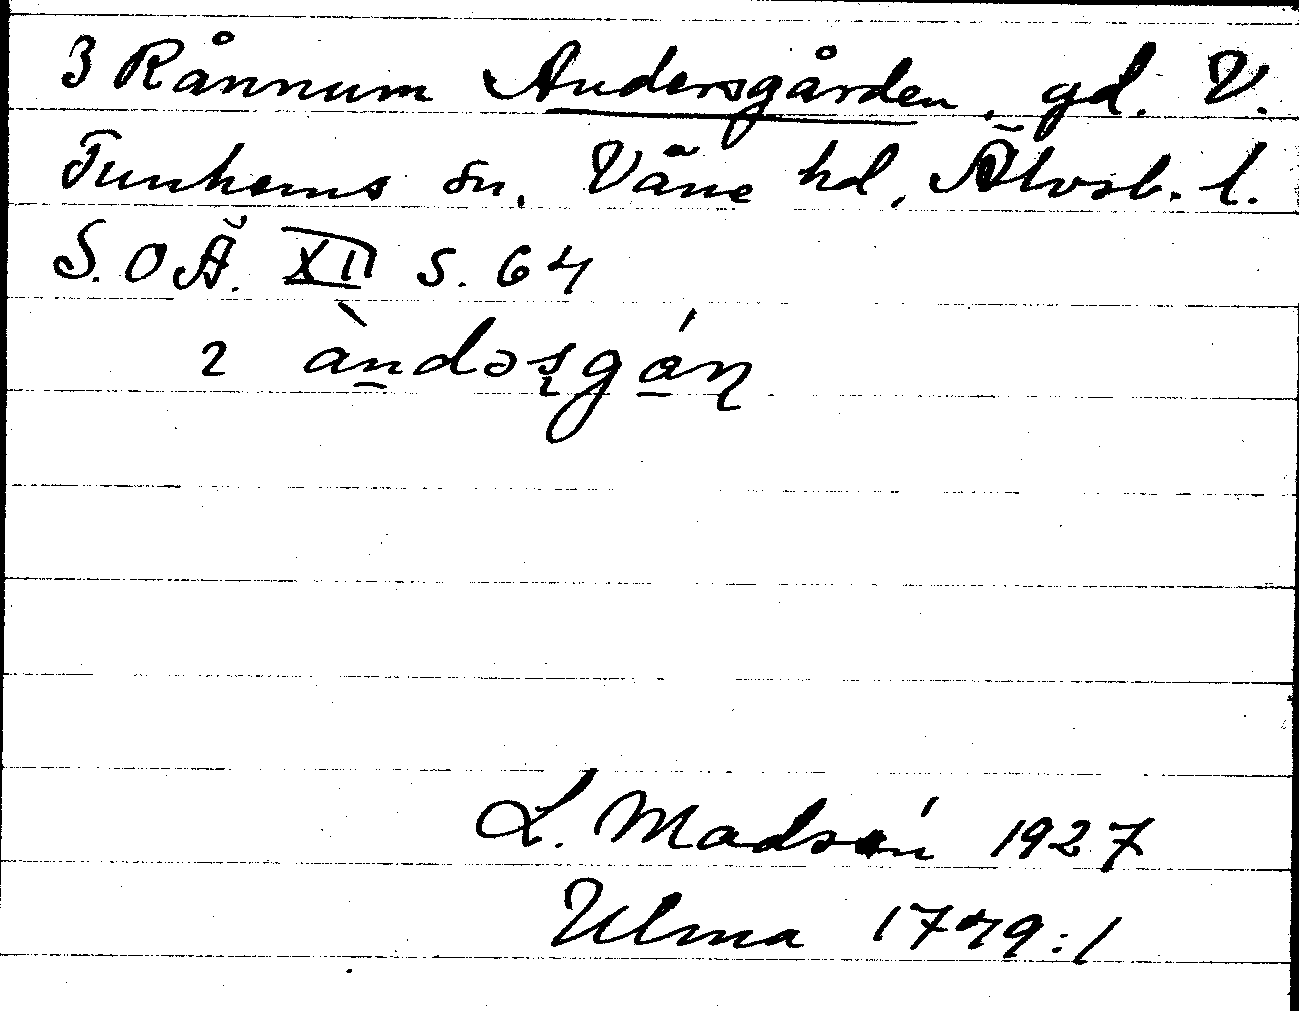 3 Rånnum Andersgården, gd. V.
Tunhems sn, Väne hd, Älvsb. l.
S. O Ä. XII s. 64
2 àndəʂgáɳ
L. Madsén 1927
Ulma 1749:1